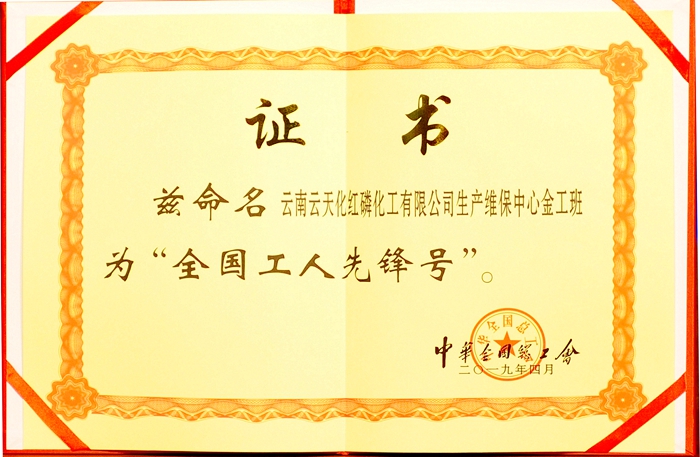 证书
兹命名 云南云天化红磷化工有限公司生产维保中心金工班
为“全国工人先锋号”。
中华全国总工会
二〇一九年四月